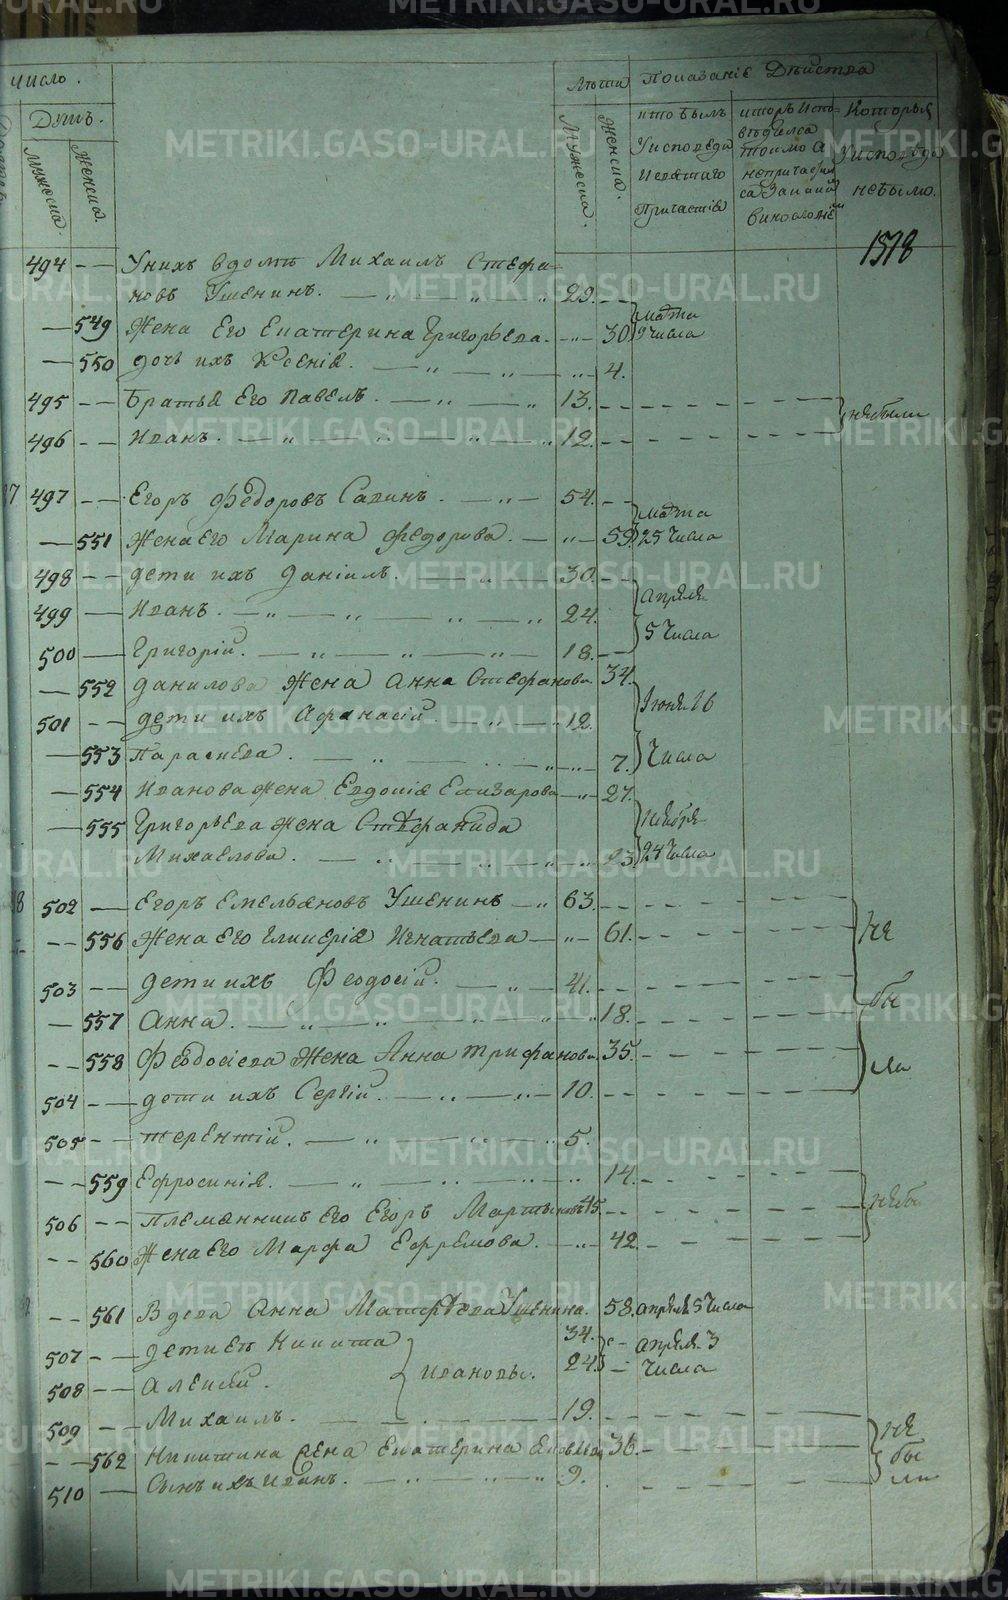 Число.
Душъ.
Мужеска.
Женска.
Лѣта
Мужеска.
Женска.
Показаніе Дѣйства
кто былъ
Уисповеди
Исвятаго
Причастія
которы Испо-
ведался
токмо а
непричасти
са Заканим
виносломіе
Которыя
Уисповеди
небыло.
1518
494 — — Унихъ вдомѣ Михаилъ Стефа-
новъ Ушенинъ. 29.
— 549 Жена Его Екатерина Григорьева. 30. марта 9 числа
— 550 дочь ихъ Ксенія. 4.
495 — — Братья Его Павелъ. 13. небыли
496 — — Иванъ. 12.
497 — — Егоръ Федоровъ Савинъ. 54. марта
— 551 Жена Его Марина Федорова. 59. 25 числа
498 — — дети ихъ Даніилъ. 30. апреля
499 — — Иванъ. 24.
500 — Григорій. 18. 5 числа
— 552 данилова Жена Анна Стефанова. 34.
501 — — дети ихъ Афанасій. 12. Іюня 16
— 553 Параскева. 7. Числа
— 554 Иванова жена Евдокія Елизарова 27.
— 555 Григорьева жена Стефанида ноября
Михаелова. 23. 24 числа
502 — Егоръ Емельяновъ Ушенинъ 63.
— — 556 Жена Его Гликерія Игнатьева 61. не
503 — — дети ихъ Феодосій. 41. бы
— 557 Анна. 18.
— — 558 Феодосіева Жена Анна Трифанова. 35. ли
504 — — дети ихъ Сергій. 10.
505 — — Терентій. 5.
— — 559 Ефросинія. 14. небы
506 — — Племянникъ Его Егоръ Мартыновъ 45.
— — 560 Жена Его Марфа Ефремова. 42.
— — 561 Вдова Анна Матфѣева Ушенина. 58. апреля 5 числа
507 — — дети ея Никита 34. апреля 3
508 — — Алексѣй. Ивановы. 24. Числа
509 — — Михаилъ. 19. не
— — 562 Никитина жена Екатерина 36. бы
510 — Сынъ ихъ Иванъ. 9. ли
METRIKI.GASO-URAL.RU